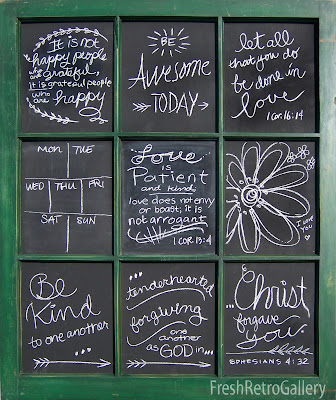 It is not
happy people
who are grateful,
it is grateful people
who are happy
BE
Awesome
TODAY
let all
that you do
be done in
love
1 Cor. 16:14
MON TUE
WED THU FRI
SAT SUN
Love
is
Patient
and kind;
love does not envy
or boast; it is
not arrogant
1 COR. 13:4
I Love
you
Be
Kind
to one another
...
tenderhearted
forgiving
one
another
as GOD in...
...
Christ
forgave
you.
EPHESIANS 4:32
FreshRetroGallery